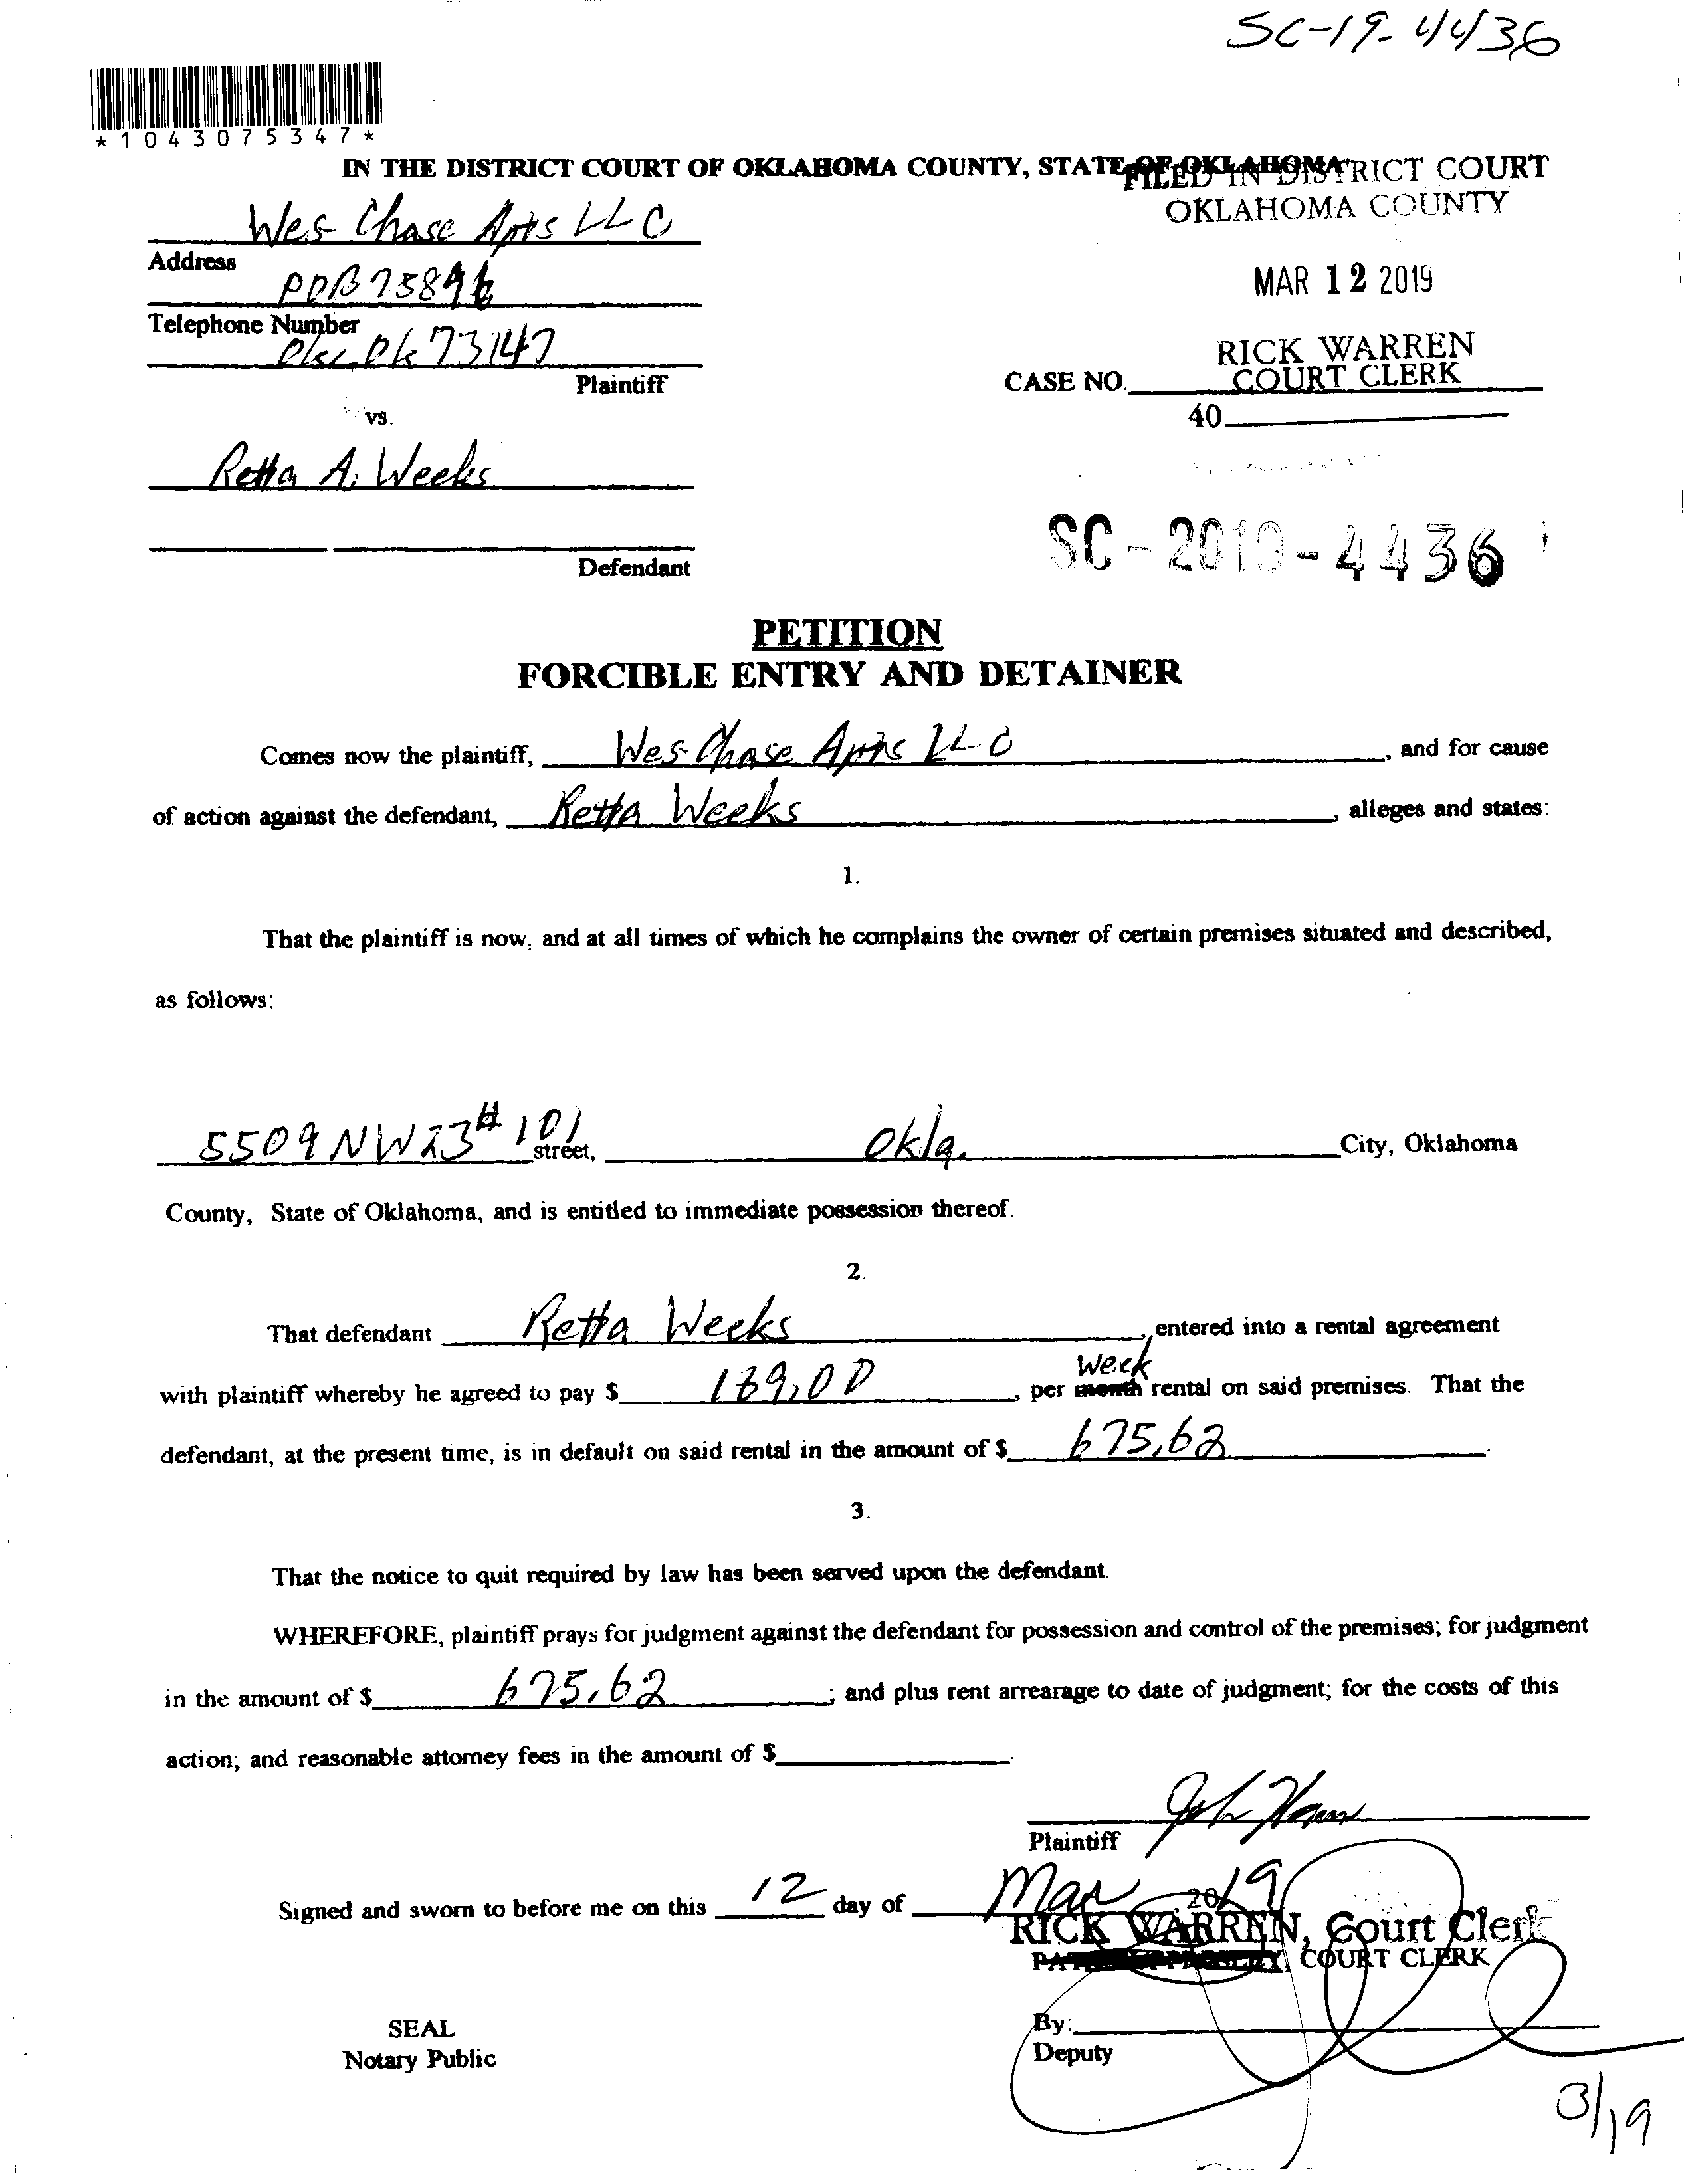 SC-19-4436
*1043075347*
IN THE DISTRICT COURT OF OKLAHOMA COUNTY, STATE OF OKLAHOMA
FILED IN DISTRICT COURT
OKLAHOMA COUNTY
Wes Chase Apts LLC
Address
POB 75896
MAR 12 2019
Telephone Number
Okc Ok 73147
RICK WARREN
COURT CLERK
Plaintiff
CASE NO.
vs.
40
Retta A. Weeks
SC-2019-4436
Defendant
PETITION
FORCIBLE ENTRY AND DETAINER
Comes now the plaintiff, Wes Chase Apts LLC, and for cause
of action against the defendant, Retta Weeks, alleges and states:
1.
That the plaintiff is now, and at all times of which he complains the owner of certain premises situated and described,
as follows:
5509 NW 23 # 101 street, Okla. City, Oklahoma
County, State of Oklahoma, and is entitled to immediate possession thereof.
2.
That defendant Retta Weeks, entered into a rental agreement
with plaintiff whereby he agreed to pay $ .00, per month Week rental on said premises. That the
defendant, at the present time, is in default on said rental in the amount of $ 675.62.
3.
That the notice to quit required by law has been served upon the defendant.
WHEREFORE, plaintiff prays for judgment against the defendant for possession and control of the premises; for judgment
in the amount of $ 675.62; and plus rent arrearage to date of judgment; for the costs of this
action; and reasonable attorney fees in the amount of $.
Plaintiff
Signed and sworn to before me on this 12 day of Mar 2019
RICK WARREN, Court Clerk
COURT CLERK
SEAL
By:
Notary Public
Deputy
3/19